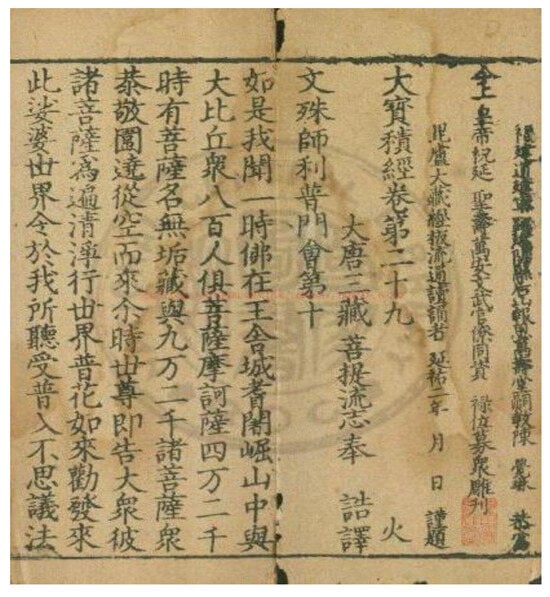 福建道建寧路建陽縣后山報恩萬壽堂嗣教陳 覺琳 恭爲
今上 皇帝祝延 聖壽萬安文武官僚同資 祿位募衆雕刊
毗盧大藏經板流通讀誦者 延祐二年 月 日 謹題
大寶積經卷第二十九 火
大唐三藏菩提流志奉 詔譯
文殊師利普門會第十
如是我聞一時佛在王舍城耆闍崛山中與
大比丘衆八百人俱菩薩摩訶薩四万二千
時有菩薩名無垢藏與九万二千諸菩薩衆
恭敬圍遶從空而來尒時世尊即告大衆彼
諸菩薩爲遍清淨行世界普花如來勸發來
此娑婆世界令於我所聽受普入不思議法